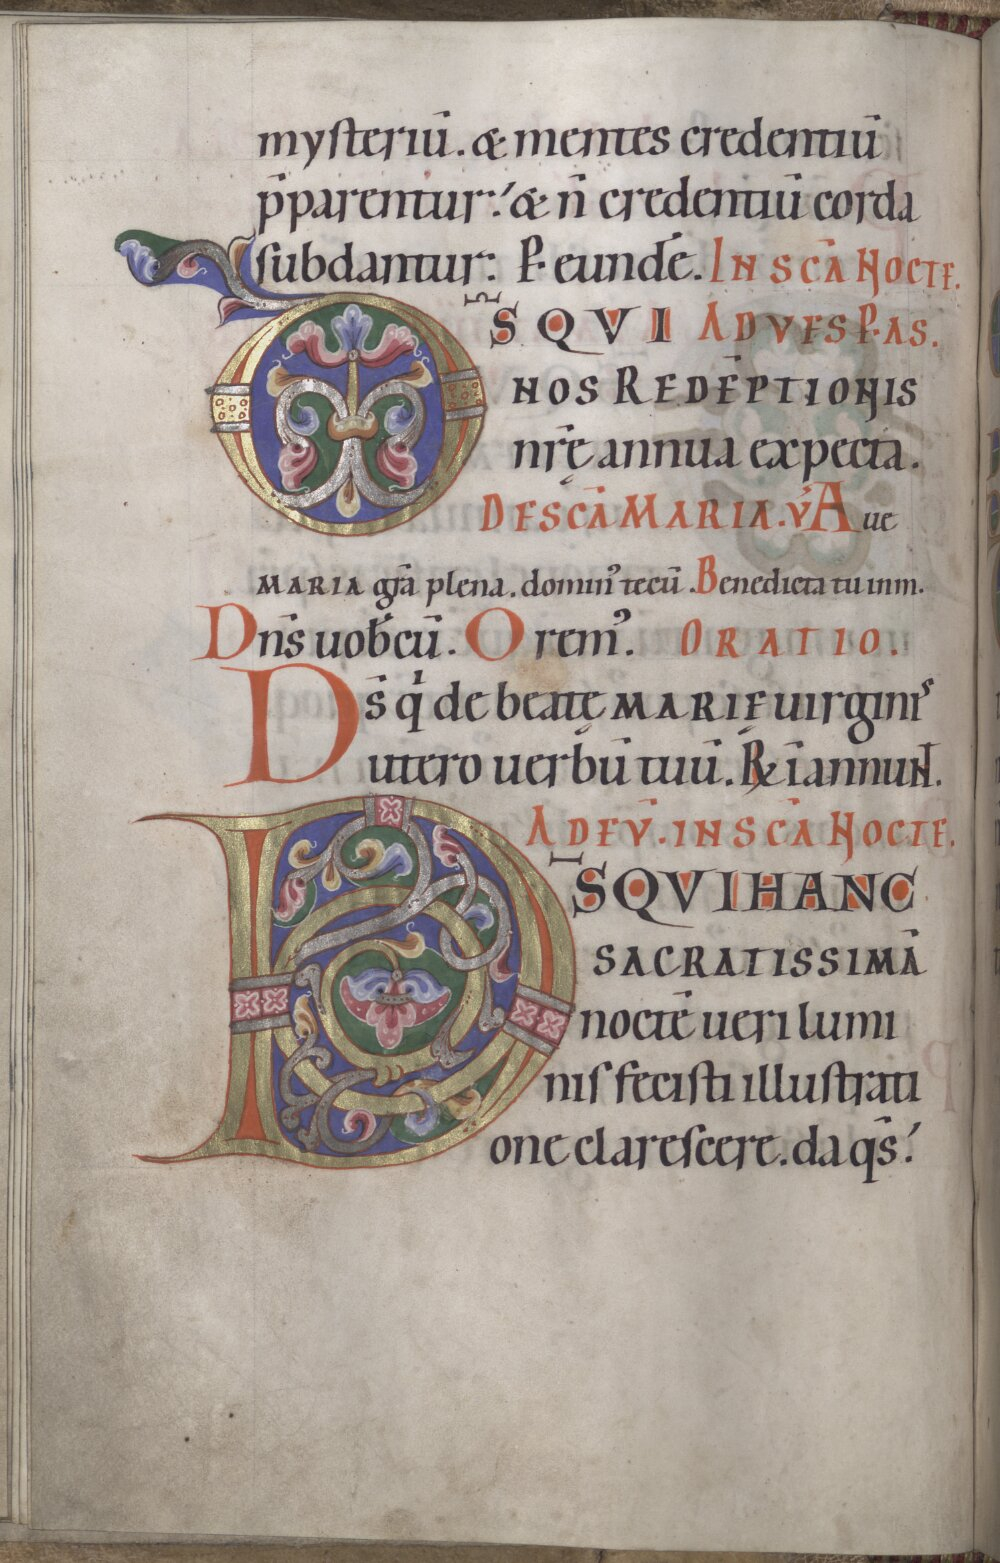 mysteriū. & mentes credentiū
p̄parentur:' & n̄ credentiū corda
subdantur: P. eundē. IN SCĀ NOCTE.
DS QVI AD VESP̱AS.
NOS REDĒPTIONIS
nr̄ę annua expecta.
DE SCĀ MARIA. v̄ Aue
MARIA gr̄a plena. domin᾽ tecū. Benedicta tu inm.
Dn̄s uobcū. Orem᾽. ORATIO.
Ds̄ q̓ de beatę MARIĘ uirginis
utero uerbū tuū. R̶ ī annuN̄.
AD EV̄. IN SCĀ NOCTE.
DS QVI HANC
SACRATISSIMĀ
noctē ueri lumi
nis fecisti illustrati
one clarescere. da qs̄:'